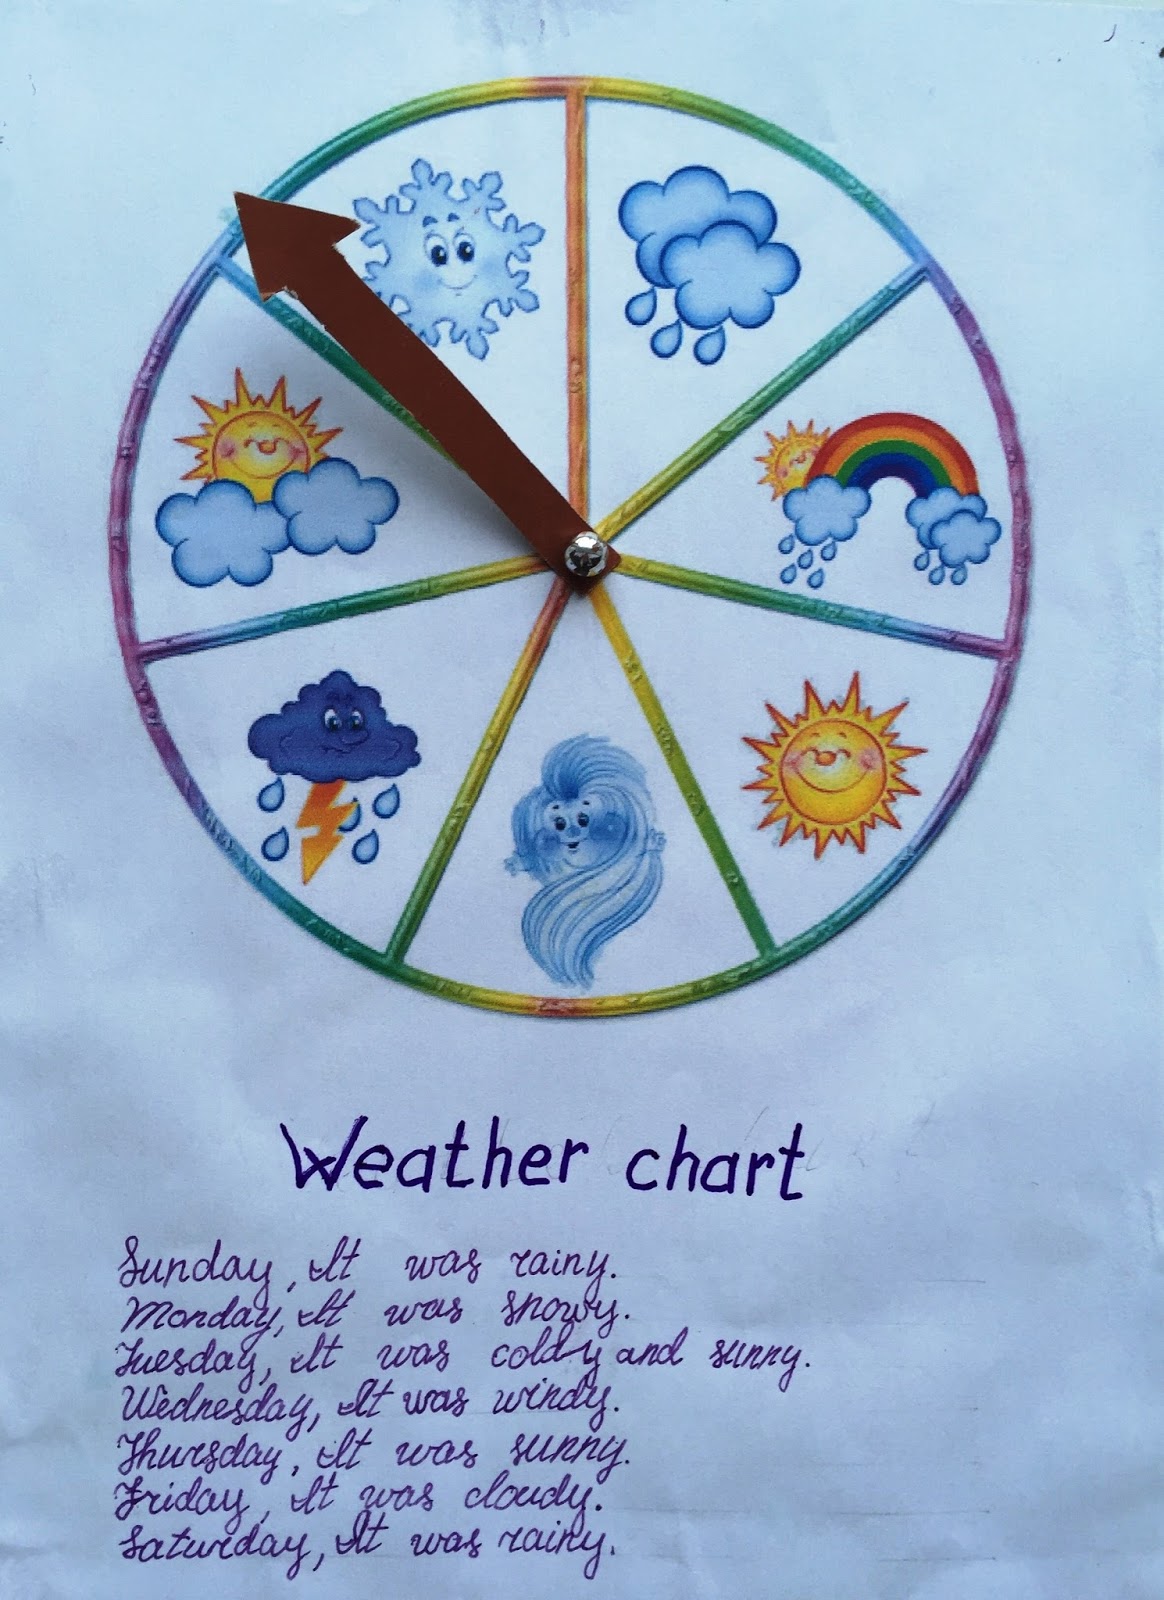 Weather chart
Sunday, It was rainy.
Monday, It was snowy.
Tuesday, It was coldy and sunny.
Wednesday, It was windy.
Thursday, It was sunny.
Friday, It was cloudy.
Saturday, It was rainy.